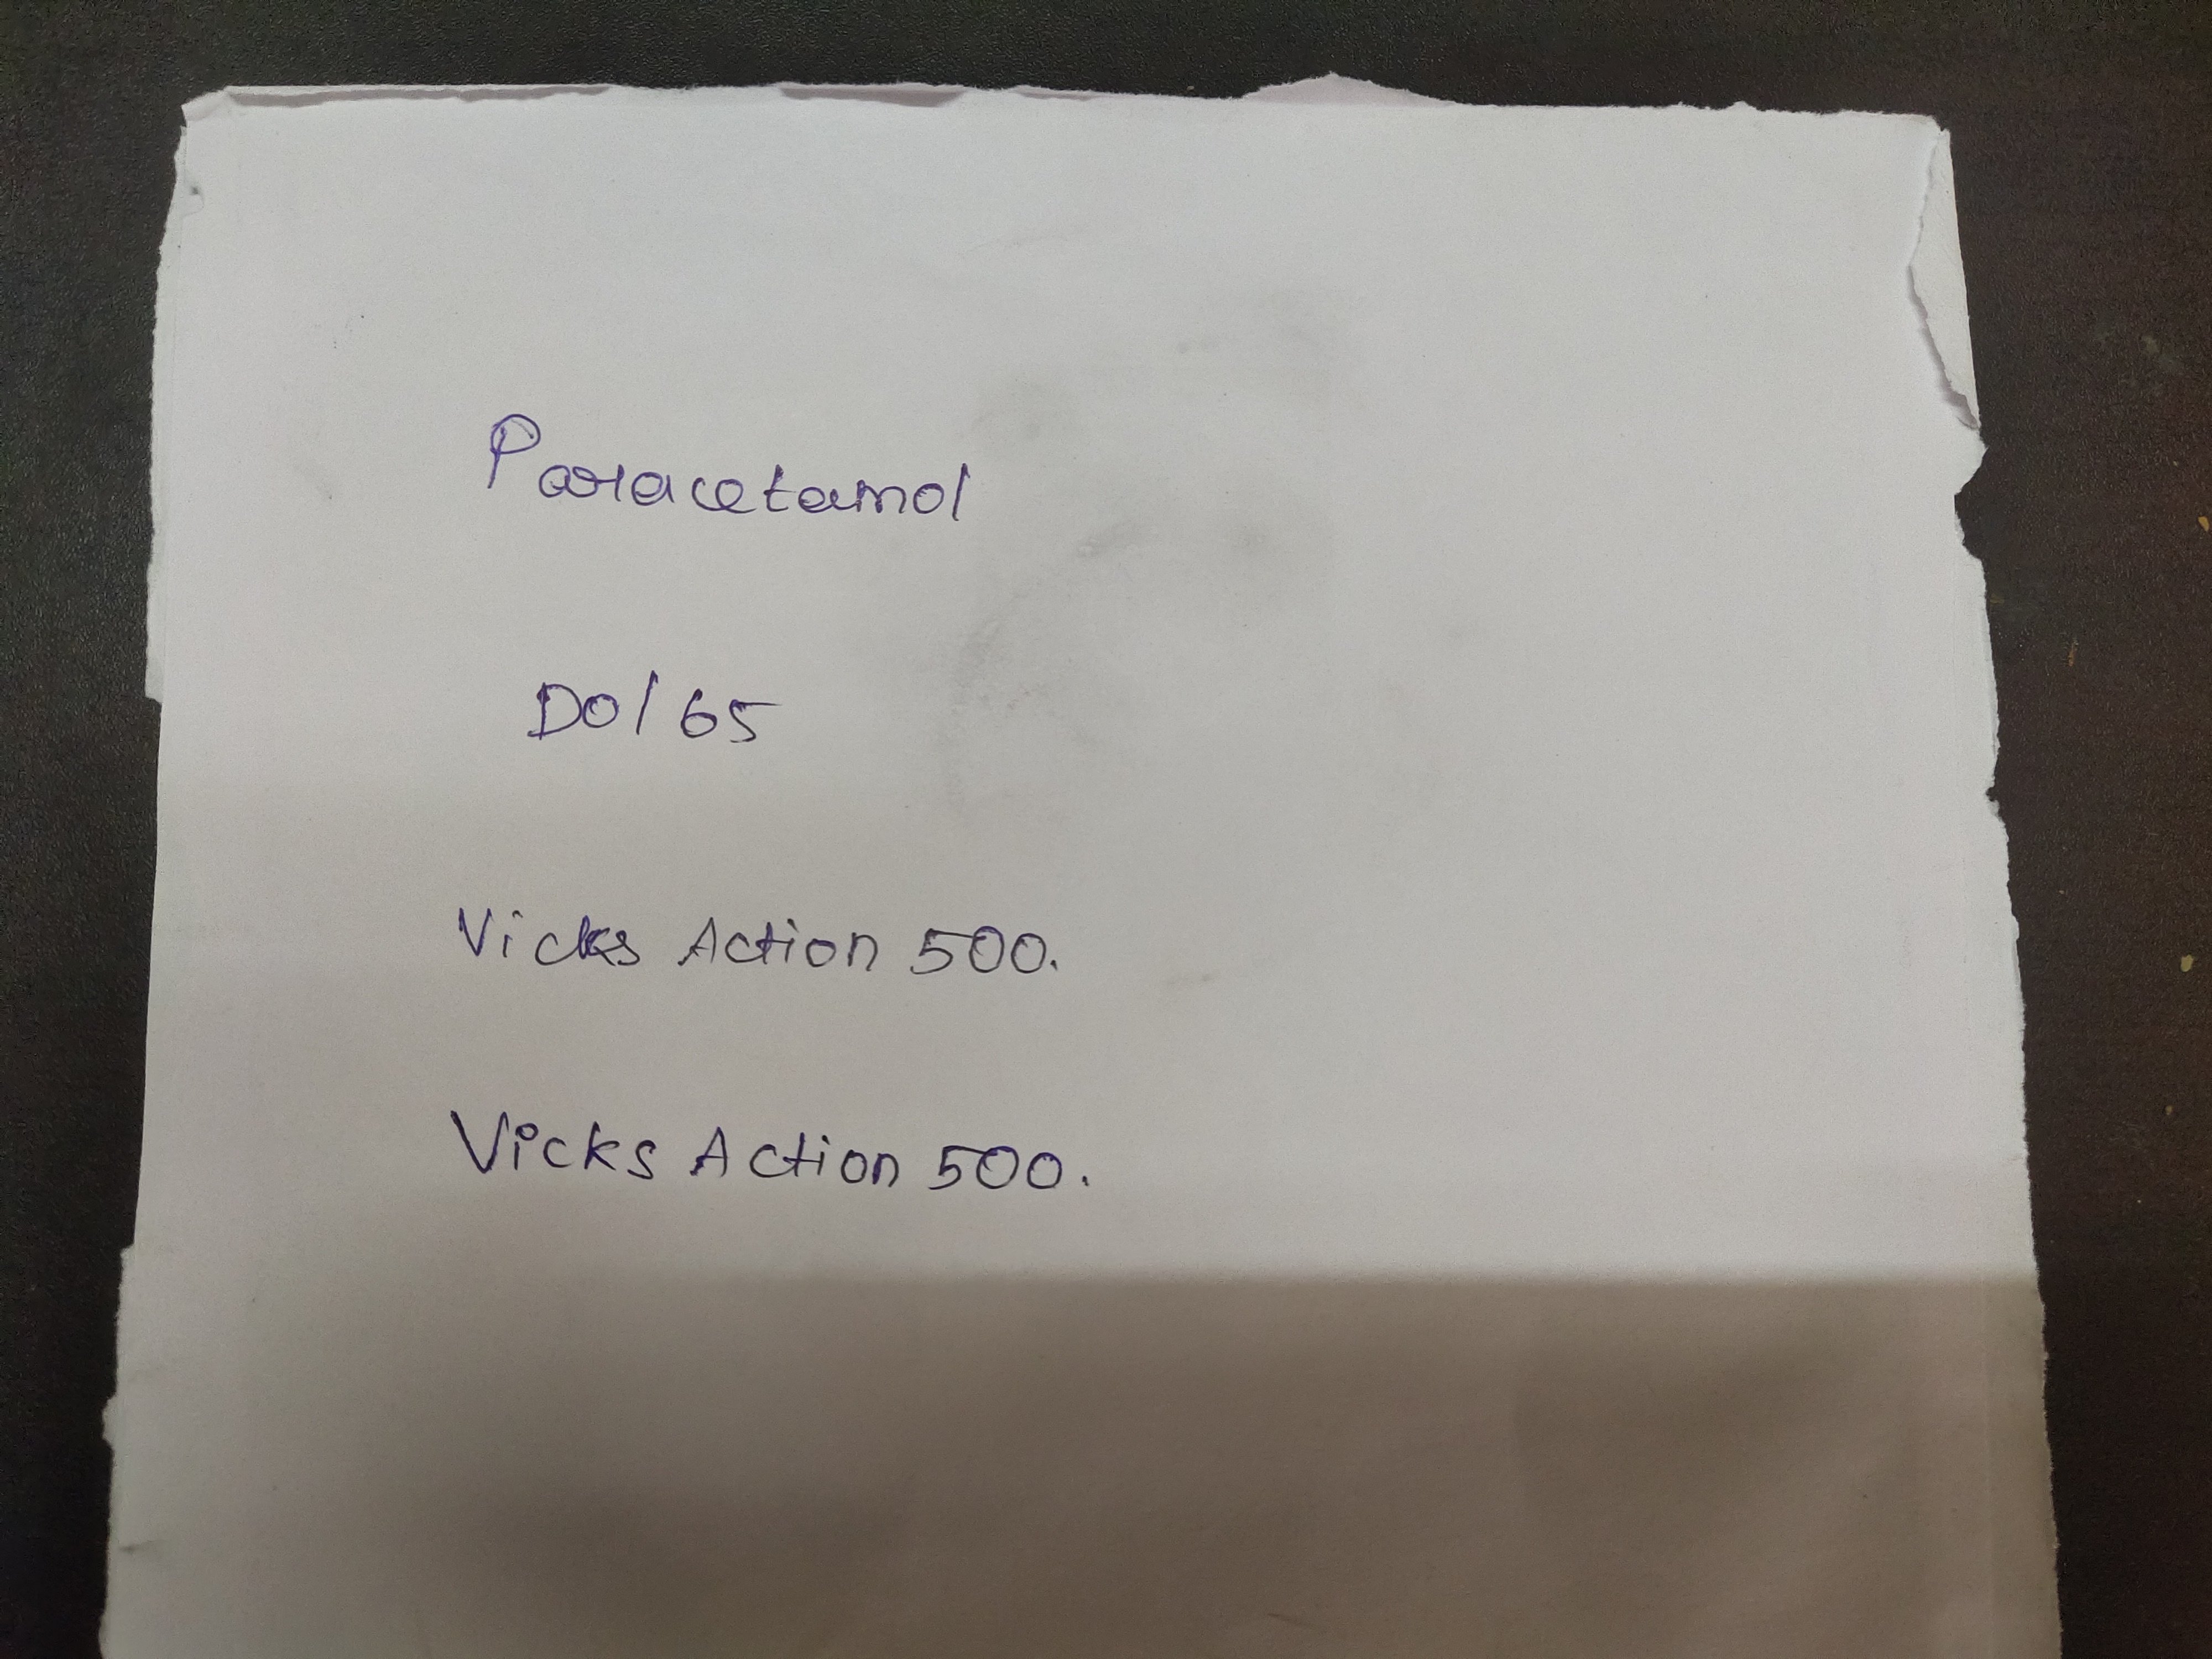 Paracetamol
Dol 65
Vicks Action 500.
Vicks Action 500.